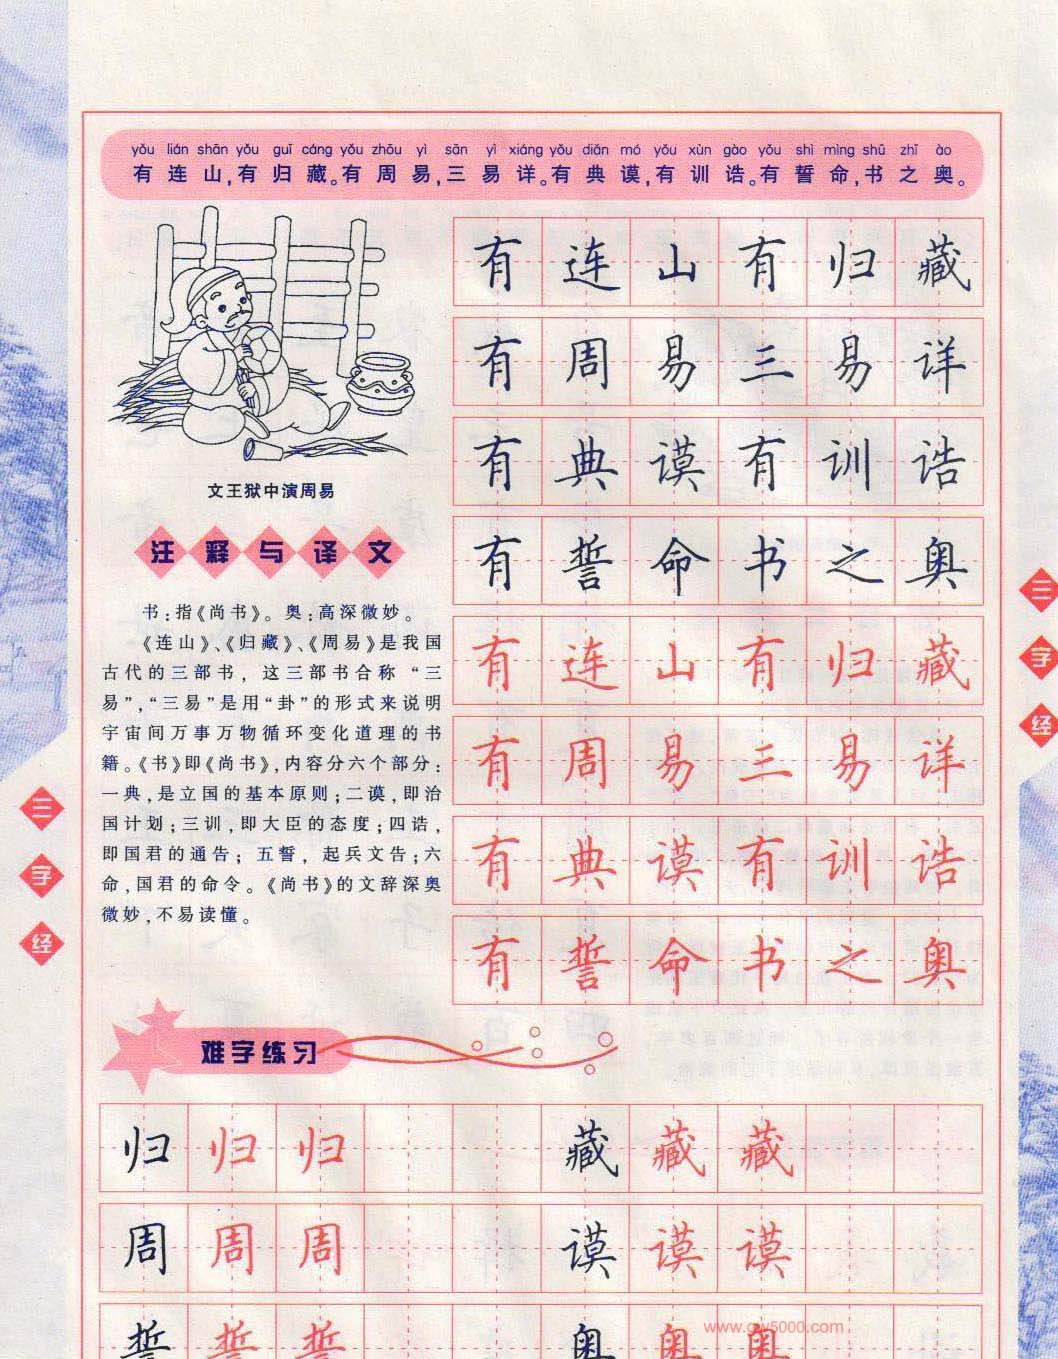 yǒu lián shān yǒu guī cáng yǒu zhōu yì sān yì xiáng yǒu diǎn mó yǒu xùn gào yǒu shì mìng shū zhī ào
有连山,有归藏。有周易,三易详。有典谟,有训诰。有誓命,书之奥。
有连山有归藏
有周易三易详
有典谟有训诰
有誓命书之奥
有连山有归藏
有周易三易详
有典谟有训诰
有誓命书之奥
文王狱中演周易
注释与译文
书:指《尚书》。奥:高深微妙。
《连山》、《归藏》、《周易》是我国
古代的三部书,这三部书合称“三
易”,“三易”是用“卦”的形式来说明
宇宙间万事万物循环变化道理的书
籍。《书》即《尚书》,内容分六个部分:
一典,是立国的基本原则;二谟,即治
国计划;三训,即大臣的态度;四诰,
即国君的通告;五誓,起兵文告;六
命,国君的命令。《尚书》的文辞深奥
微妙,不易读懂。
三字经
三字经
难字练习
归归归 藏藏藏
周周周 谟谟谟
誓誓誓 奥奥奥